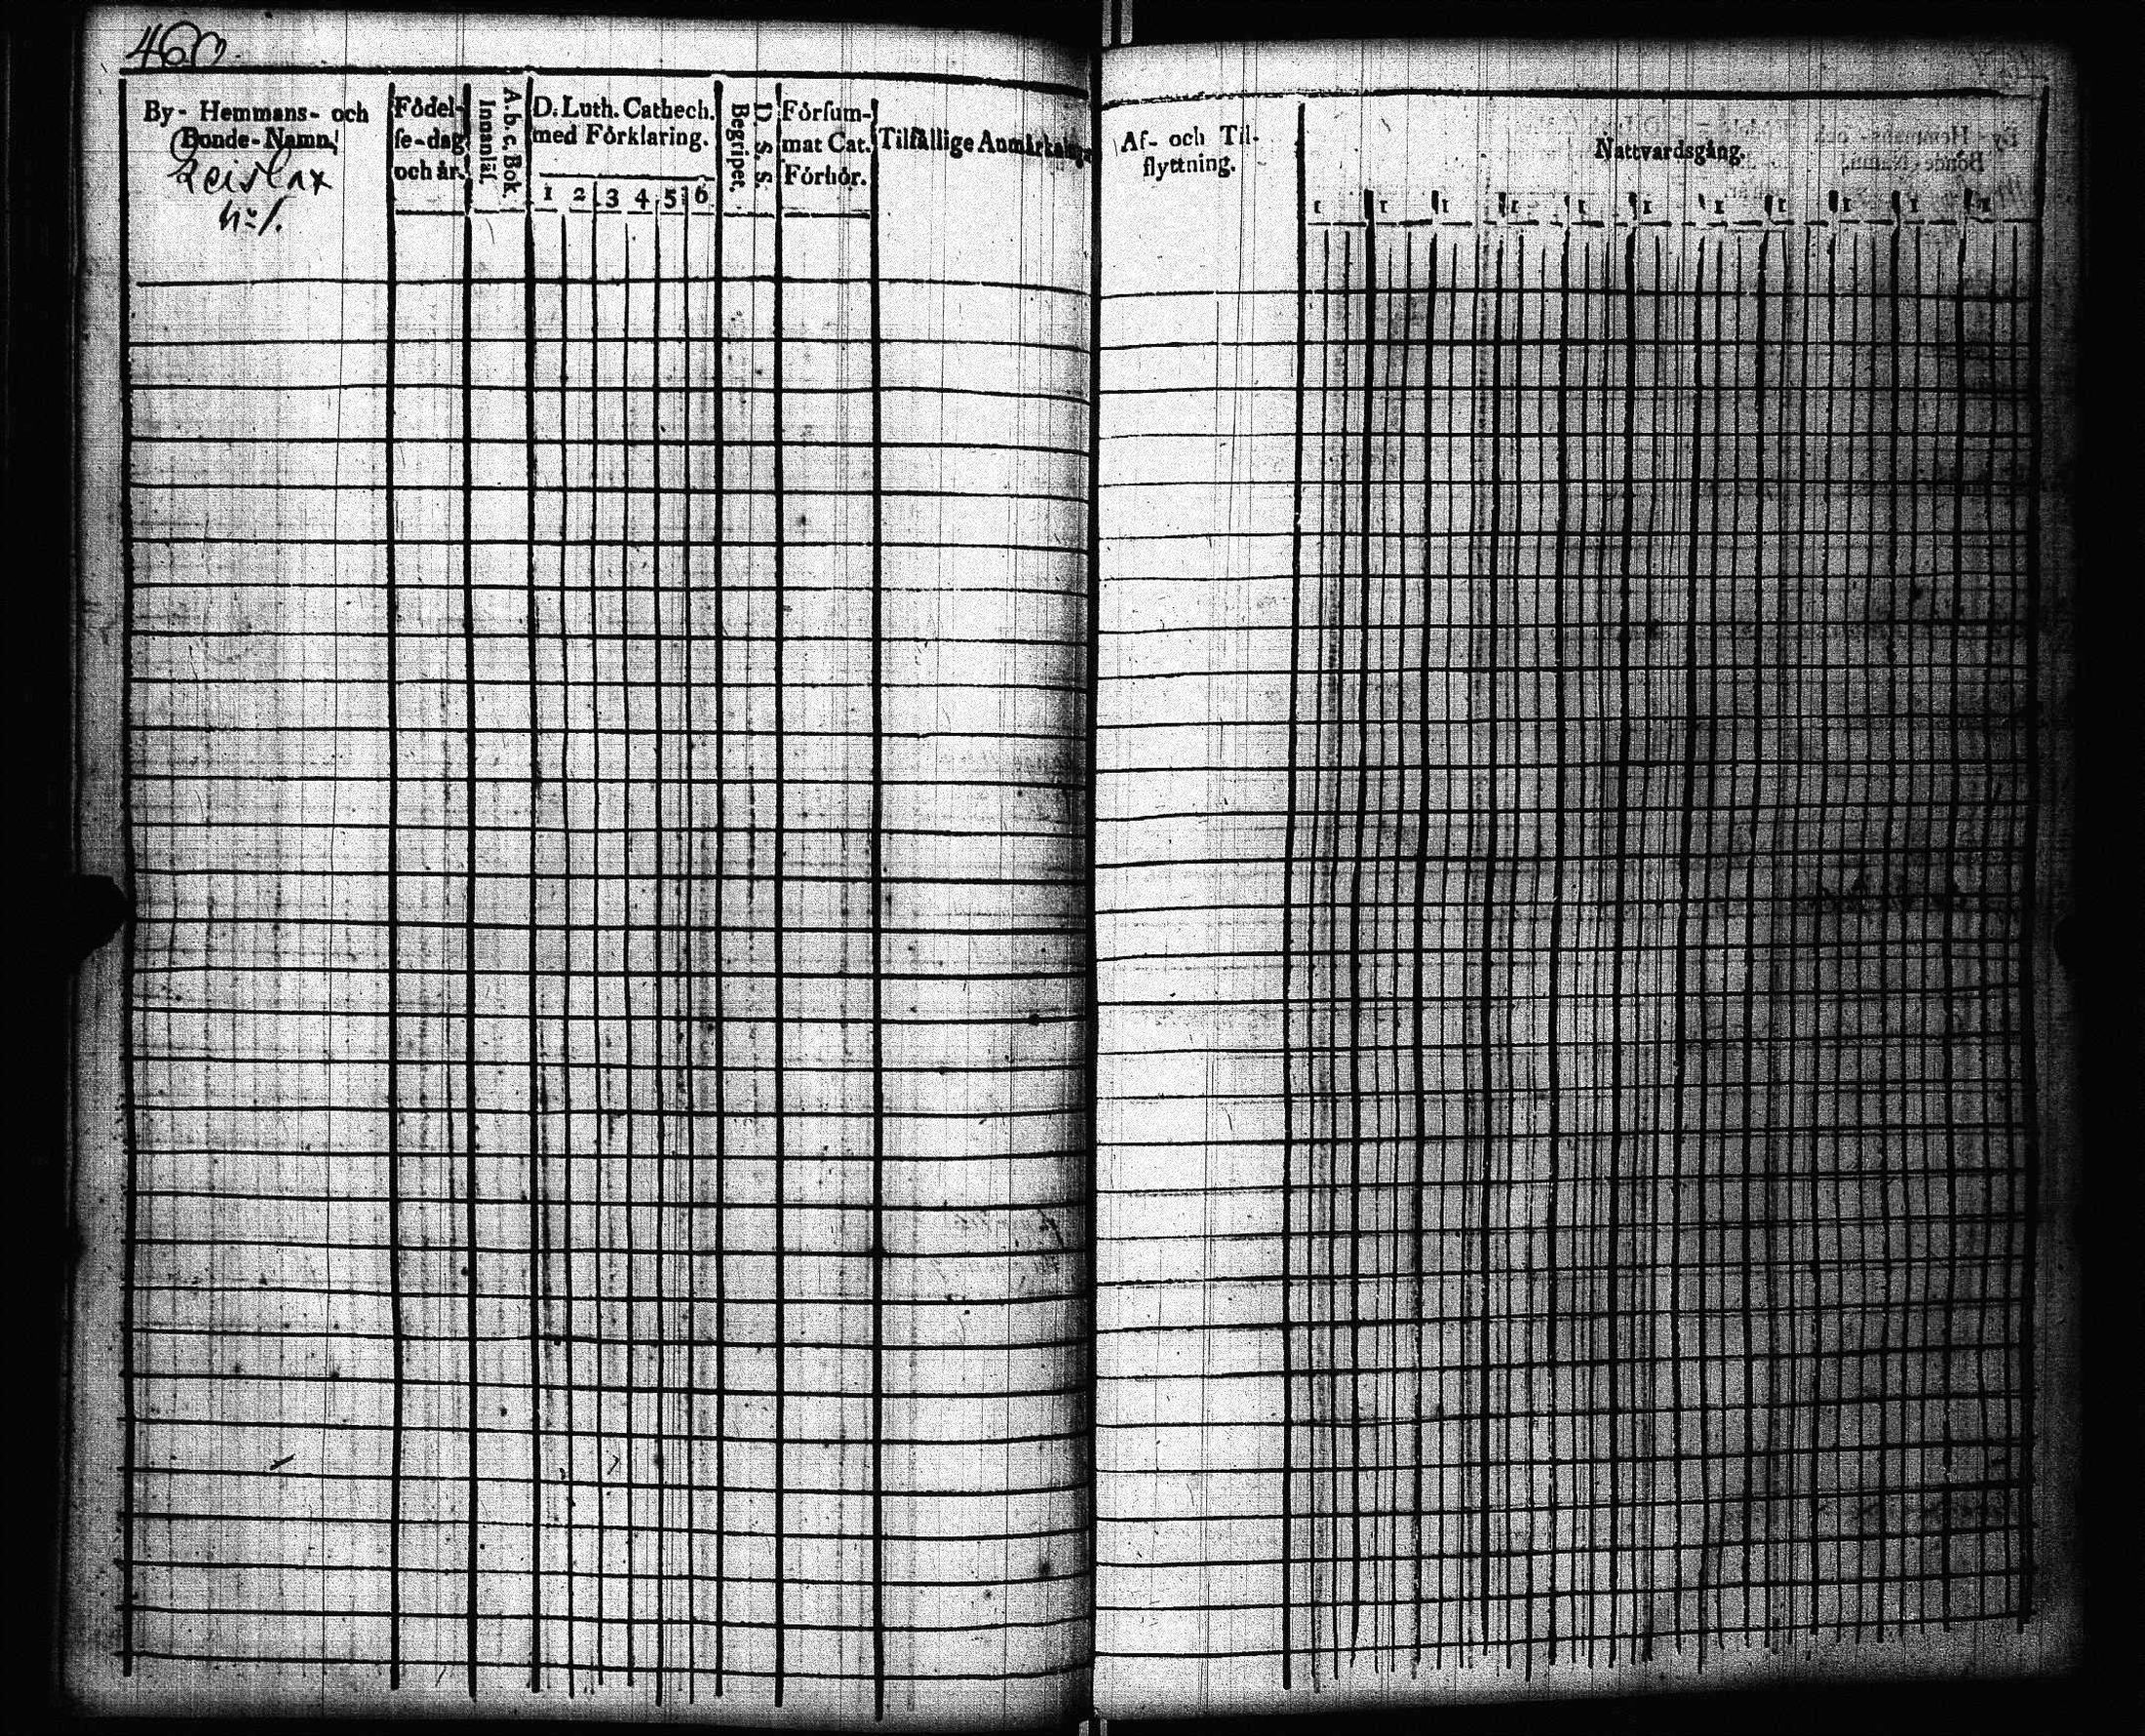 460.
By- Hemmans- och
Bonde-Namn.
Geislax
No 1.
Födel-
se-dag
och år.
A.b.c. Bok
Innanläf.
D. Luth. Cathech.
med Förklaring.
1 2 3 4 5 6
D. S. S.
Begriper.
Förfum-
mat Cat.
Förhör.
Tilfällige Anmärkningar
Af- och Til-
flyttning.
Nattvardsgång.
1 1 1 1 1 1 1 1 1 1 1